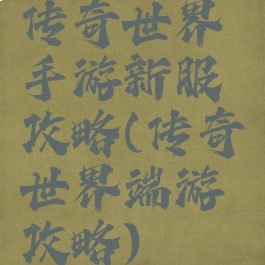 传奇世界
手游新服
攻略(传奇
世界端游
攻略)